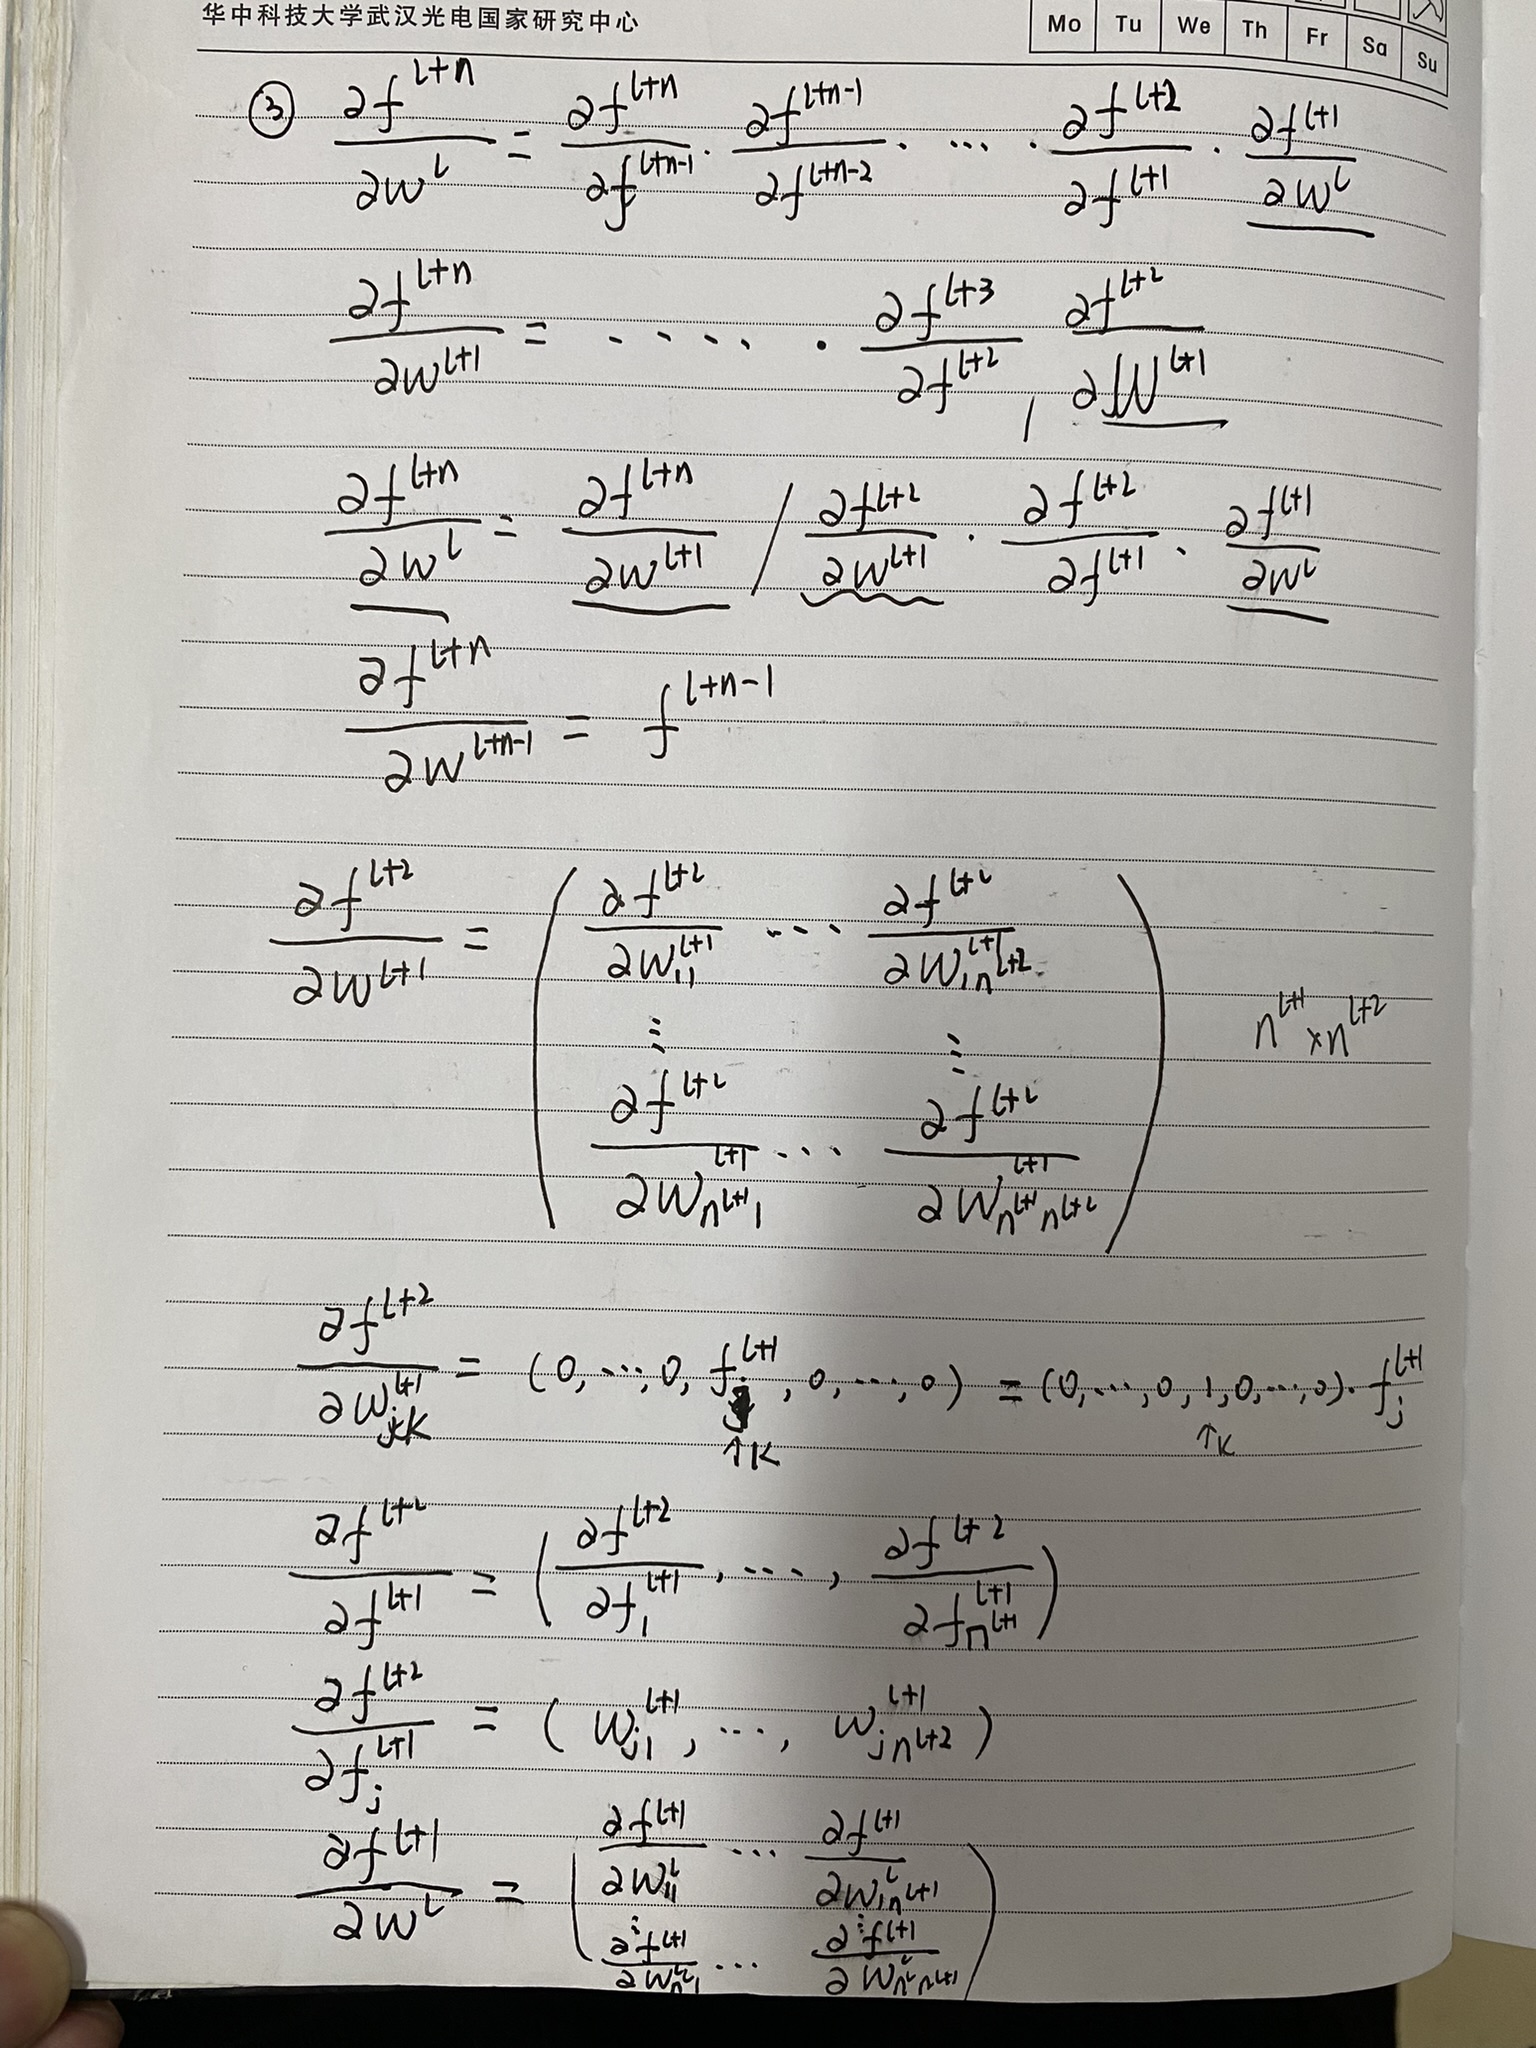 华中科技大学武汉光电国家研究中心
Mo Tu We Th Fr Sa Su
③ ∂f^{l+n}/∂w^l = ∂f^{l+n}/∂f^{l+n-1} · ∂f^{l+n-1}/∂f^{l+n-2} · ... · ∂f^{l+2}/∂f^{l+1} · ∂f^{l+1}/∂w^l
∂f^{l+n}/∂w^{l+1} = ..... · ∂f^{l+3}/∂f^{l+2} , ∂f^{l+2}/∂fW^{l+1}
∂f^{l+n}/∂w^l = ∂f^{l+n}/∂w^{l+1} / ∂f^{l+2}/∂w^{l+1} · ∂f^{l+2}/∂f^{l+1} · ∂f^{l+1}/∂w^l
∂f^{l+n}/∂w^{l+n-1} = f^{l+n-1}
∂f^{l+2}/∂w^{l+1} = ( ∂f^{l+2}/∂w_{11}^{l+1} ... ∂f^{l+2}/∂w_{1n^{l+2}}^{l+1}
⋮ ⋮ n^{l+1}×n^{l+2}
∂f^{l+2}/∂w_{n^{l+1}1}^{l+1} ... ∂f^{l+2}/∂w_{n^{l+1}n^{l+2}}^{l+1} )
∂f^{l+2}/∂w_{jk}^{l+1} = (0, ..., 0, f_j^{l+1}, 0, ..., 0) = (0, ..., 0, 1, 0, ..., 0) · f_j^{l+1}
↑k ↑k
∂f^{l+2}/∂f^{l+1} = ( ∂f^{l+2}/∂f_1^{l+1}, ...., ∂f^{l+2}/∂f_{n^{l+1}}^{l+1} )
∂f^{l+2}/∂f_j^{l+1} = ( w_{j1}^{l+1}, ..., w_{jn^{l+2}}^{l+1} )
∂f^{l+1}/∂w^l = ( ∂f^{l+1}/∂w_{11}^l ... ∂f^{l+1}/∂w_{1n^{l+1}}^l
⋮ ⋮
∂f^{l+1}/∂w_{n^l1}^l ... ∂f^{l+1}/∂w_{n^ln^{l+1}}^l )